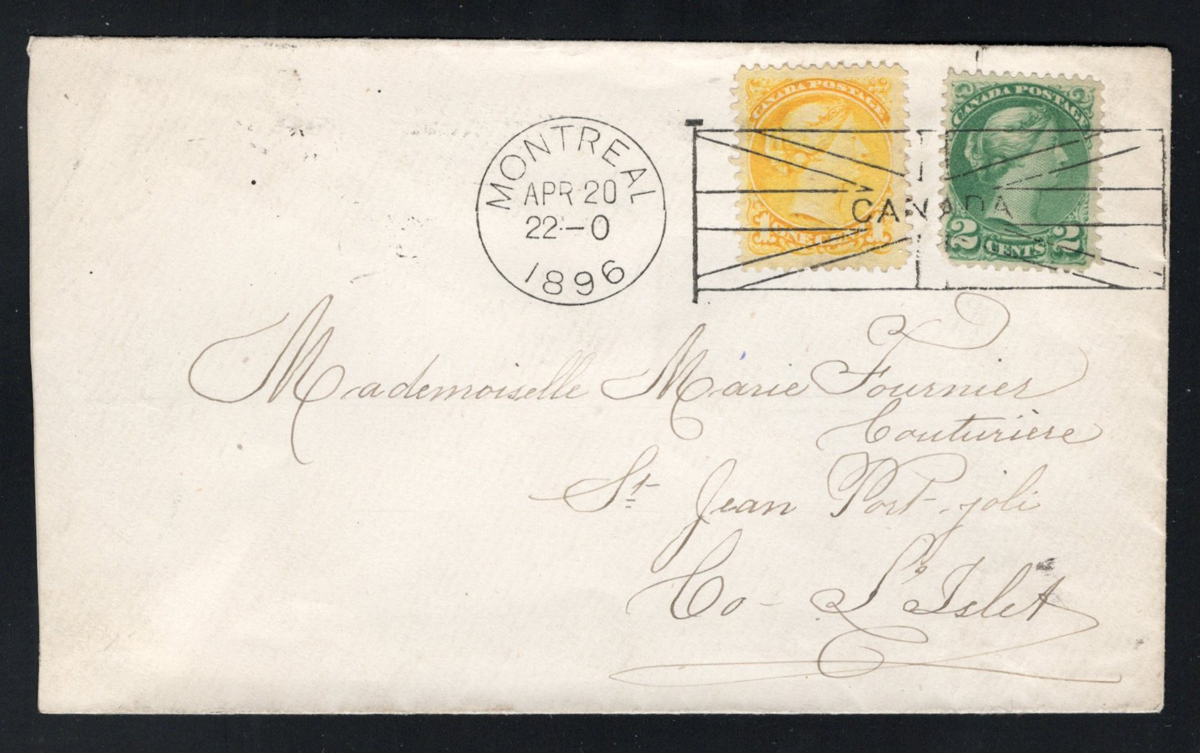 MONTREAL
APR 20
22-0
1896
CANADA POSTAGE
1 ONE CENT 1
CANADA POSTAGE
2 CENTS 2
CANADA
Mademoiselle Marie Fournier
Couturière
St Jean Port-joli
Co - L'Islet